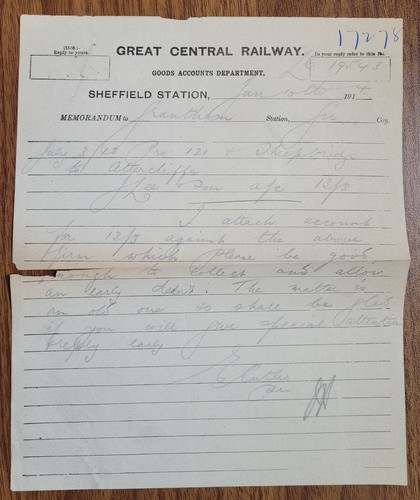 17278
(3308.)
Reply to yours
GREAT CENTRAL RAILWAY.
In your reply refer to this No.
19543
GOODS ACCOUNTS DEPARTMENT,
SHEFFIELD STATION, Jan 10th 191 4
MEMORANDUM to Grantham Station, Coy.
July 3/12 Pro 121 Sheepbridge
to Attercliffe
J Lee & Son a/c 13/3
I attach account
for 13/3 against the above
firm which please be good
enough to collect and allow
an early debit. The matter is
an old one so shall be glad
if you will give special attention
& reply early